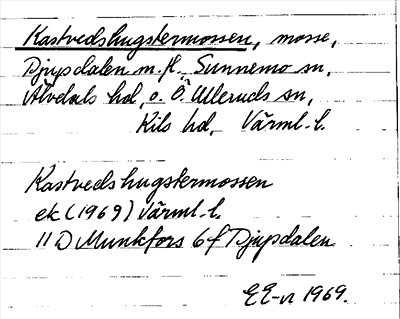 Kastvedshugstermossen, mosse,
Djupsdalen m.fl. Sunnemo sn,
Älvdals hd, o. Ö. Ulleruds sn,
Kils hd, Värml. l.
Kastvedshugstermossen
ek (1969) Värml. l.
11 D Munkfors 6 f Djupdalen
EE-n 1969.